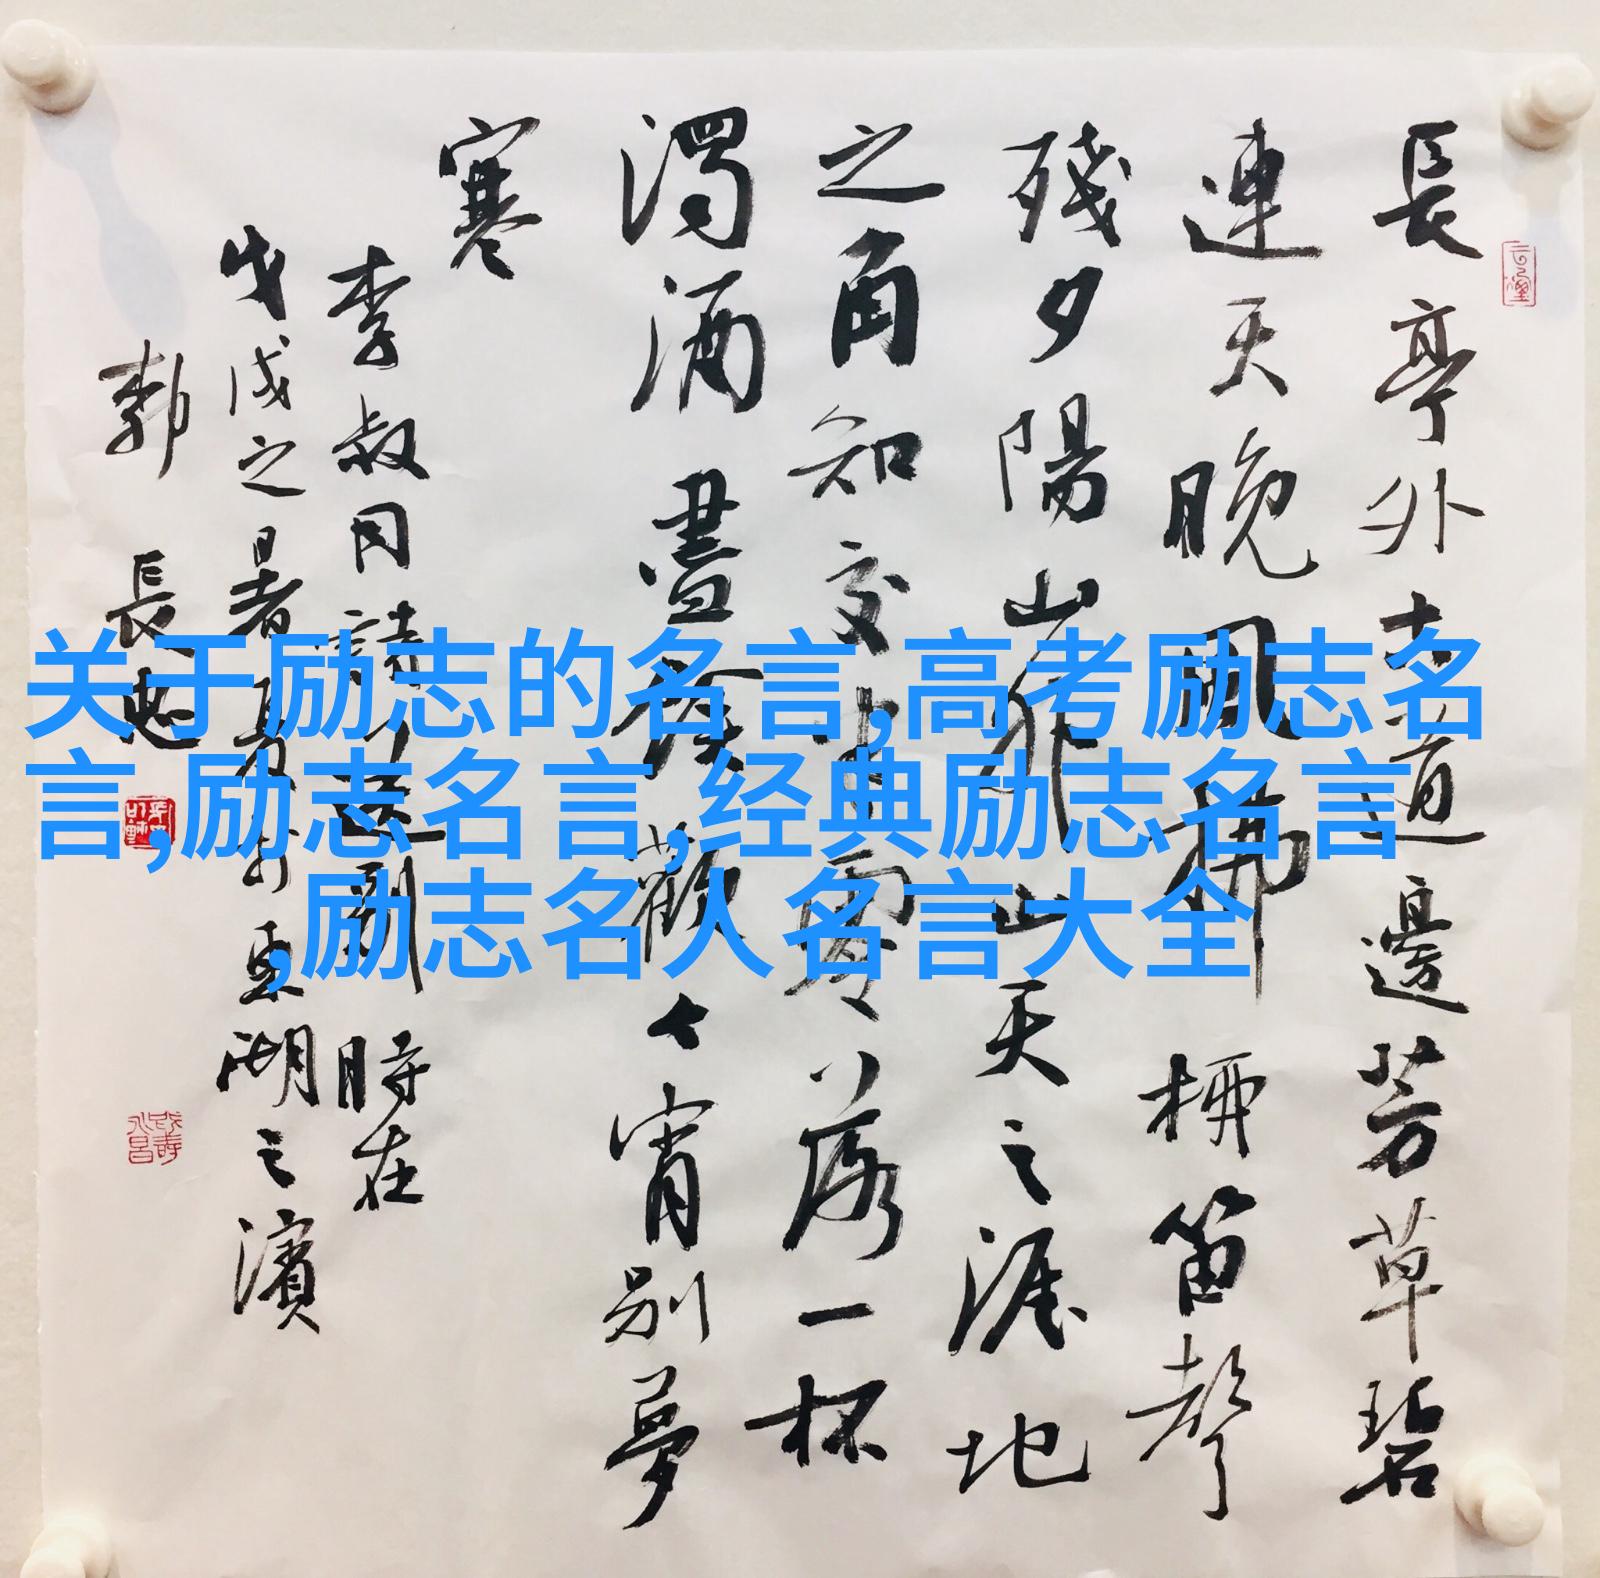 長亭外古道邊芳草碧
連天晚風拂柳笛聲
殘夕陽山外山天之涯地
之角知交半零落一杯
濁酒盡餘歡今宵別夢
寒
李叔同詩送別時在
戊戌之暑東湖之濱
長
关于励志的名言,高考励志名
言,励志名言,经典励志名言
,励志名人名言大全